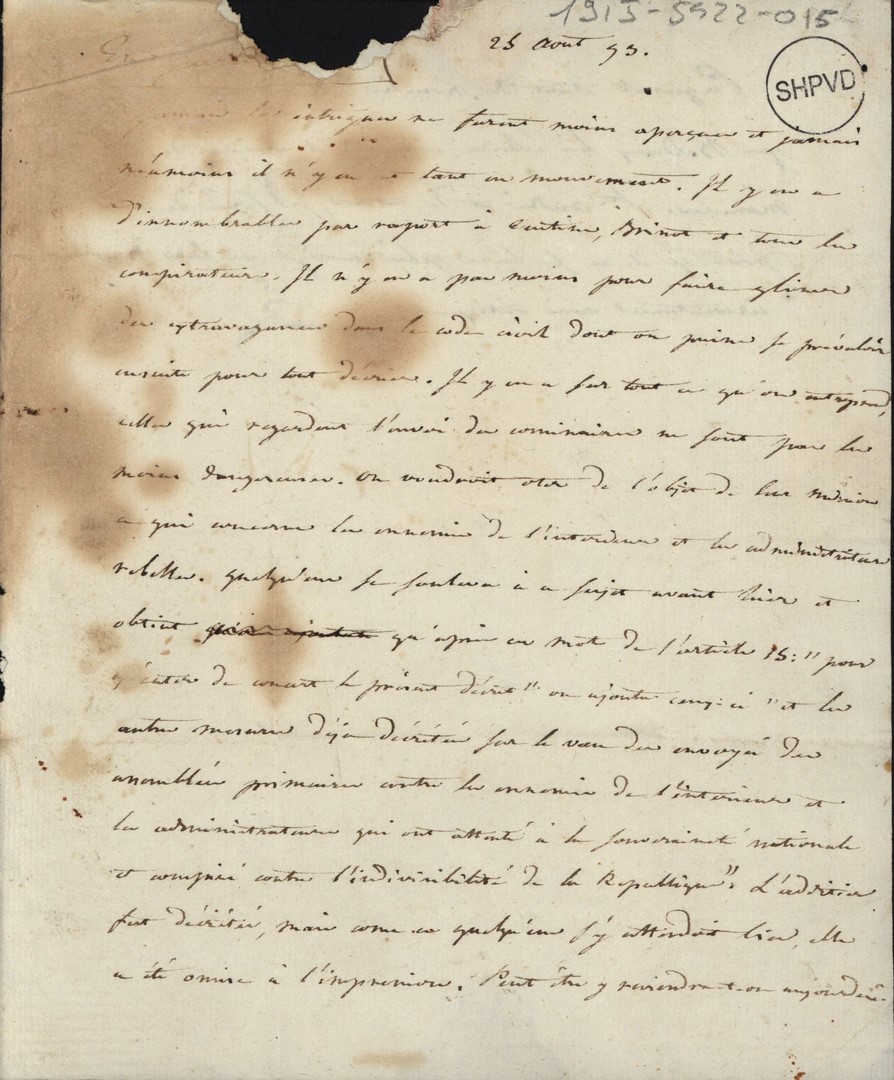 1915-5922-015
25 aout 93.
SHPVD
les intrigues ne furent moins apercues et jamais
néamoins il n'y en eut tant en mouvement. Il y en a
d'innombrables par raport à Custine, Brissot et tous les
conspirateurs. Il n'y en a pas moins pour faire glisser
des extravagances dans le code civil dont on puisse se prévaloir
ensuite pour tout décrier. Il y en a sur tout ce qu'on entreprend,
celles qui regardent l'envoi des commissaires ne sont pas les
moins dangereuses. On voudroit oter de l'objet de leur mission
ce qui concerne les ennemis de l'interieur et les administrateurs
rebelles. quelqu'un se souleva à ce sujet avant hier et
obtint qu'après ces mots de l'article 15: "pour
exécuter de concert le présent décret" on ajoute ceux-ci "et les
autres mesures déja décrétées sur le voeu des envoyés des
assemblées primaires contre les ennemis de l'interieur et
les administrateurs qui ont attenté à la souveraineté nationale
et conspiré contre l'indivisibilité de la Republique". L'addition
fut décrétée, mais come ce quelqu'un s'y attendoit bien, elle
a été omise à l'impression. Peut être y reviendra-t-on aujourdhui